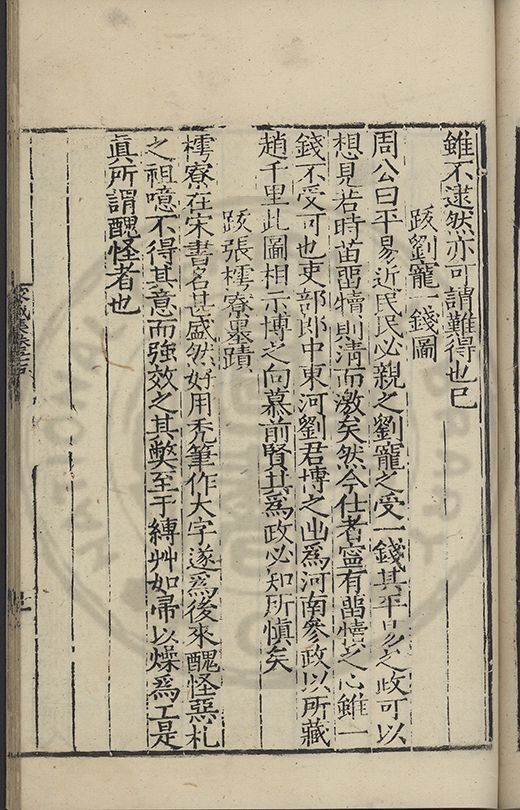 雖不逮然亦可謂難得也已
跋劉寵一錢圖
周公曰平易近民民必親之劉寵之受一錢其平易之政可以
想見若時苗留犢則清而激矣然今仕者寧有留犢之心雖一
錢不受可也吏部郎中東河劉君博之出為河南參政以所藏
趙千里此圖相示博之向慕前賢其為政必知所慎矣
跋張樗寮墨蹟
樗寮在宋書名甚盛然好用禿筆作大字遂為後來醜怪惡札
之祖噫不得其意而強效之其弊至于縛艸如帚以燥為工是
真所謂醜怪者也